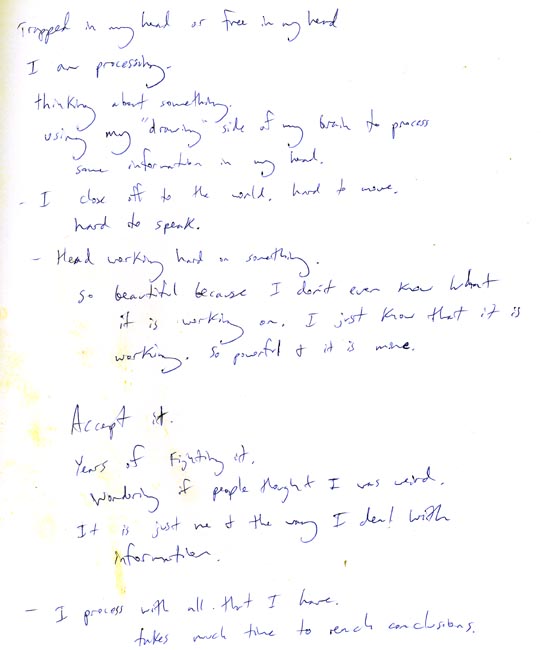 Trapped in my head or free in my head
I am processing.
thinking about something.
using my "drawing" side of my brain to process
some information in my head.
- I close off to the world. hard to move.
hard to speak.
- Head working hard on something.
so beautiful because I don't even know what
it is working on. I just know that it is
working. So powerful & it is mine.
Accept it.
Years of Fighting it.
Wondering if people thought I was weird.
It is just me & the way I deal with
information.
- I process with all that I have.
takes much time to reach conclusions.